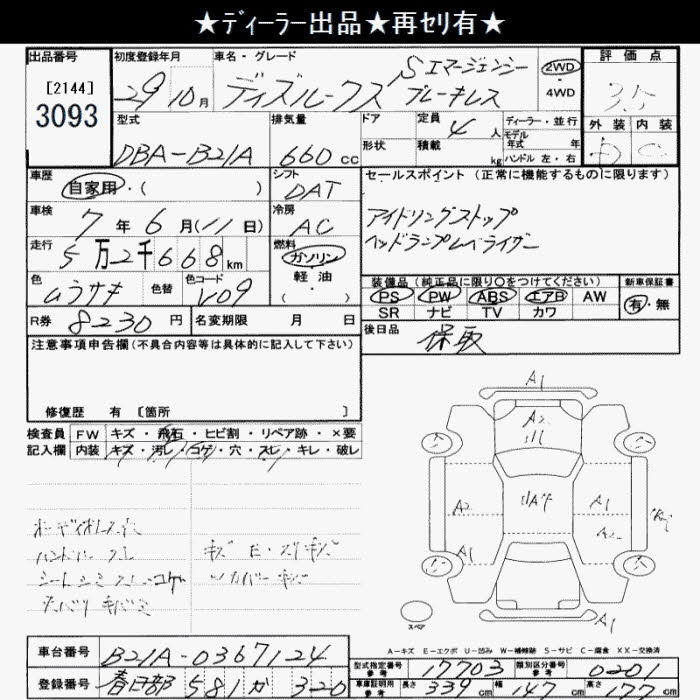 ★ディーラー出品★再セリ有★
出品番号
[2144]
3093
初度登録年月
29 10月
車名・グレード
ディズルークス Sエマージェンシー
ブレーキレス
2WD
・
4WD
評価点
3.5
外装 内装
D C
型式
DBA-B21A
排気量
660 cc
ドア
形状
定員 4 人
積載 kg
ディーラー・並行
モデル
年式 年
ハンドル 左・右
車歴
自家用・( )
シフト
DAT
セールスポイント(正常に機能するものに限ります)
アイドリングストップ
ヘッドランプレベライザー
車検
7年6月(11日)
冷房
AC
走行
5万2千668km
燃料
ガソリン
軽・油
( )
色
ムラサキ
色替
色コード
V09
装備品(純正品に限り○をつけてください)
PS PW ABS エアB AW
SR ナビ TV カワ
新車保証書
有・無
R券 8230円
名変期限 月 日
後日品
保取
注意事項申告欄(不具合内容等は具体的に記入して下さい)
修復歴 有 [箇所 ]
検査員
記入欄
FW キズ・飛石・ヒビ割・リペア跡・×要
内装 キズ・汚レ・コゲ・穴・スレ・キレ・破レ
A1
A2
A2
A1
A1
A2
A1
スペア
A-キズ E-エクボ U-凹み W-補修跡 S-サビ C-腐食 XX-交換済
車台番号 B21A-0367124
登録番号 春日部 581 が 320
型式指定番号
参考
17703
類別区分番号
参考
0201
車庫証明用
参考
長さ 339cm 幅 147cm 高さ 177cm